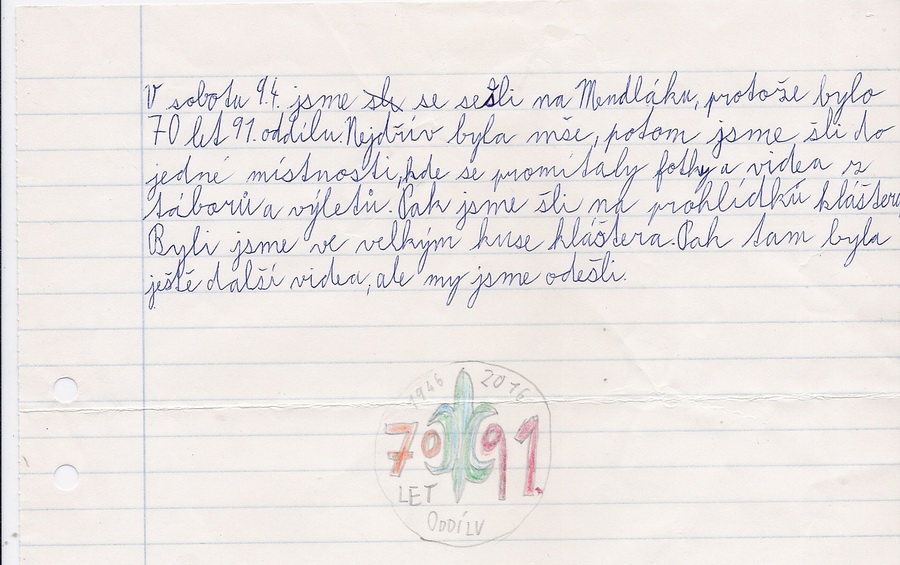 V sobotu 9.4. jsme se sešli na Mendláku, protože bylo
70 let 91. oddílu. Nejdřív byla mše, potom jsme šli do
jedné místnosti, kde se promítaly fotky a videa z
táborů a výletů. Pak jsme šli na prohlídků kláštery
Byli jsme ve velkym kuse kláštera. Pak tam byla
ještě další videa, ale my jsme odešli.
1946 2016
70 91.
LET
ODDÍLU